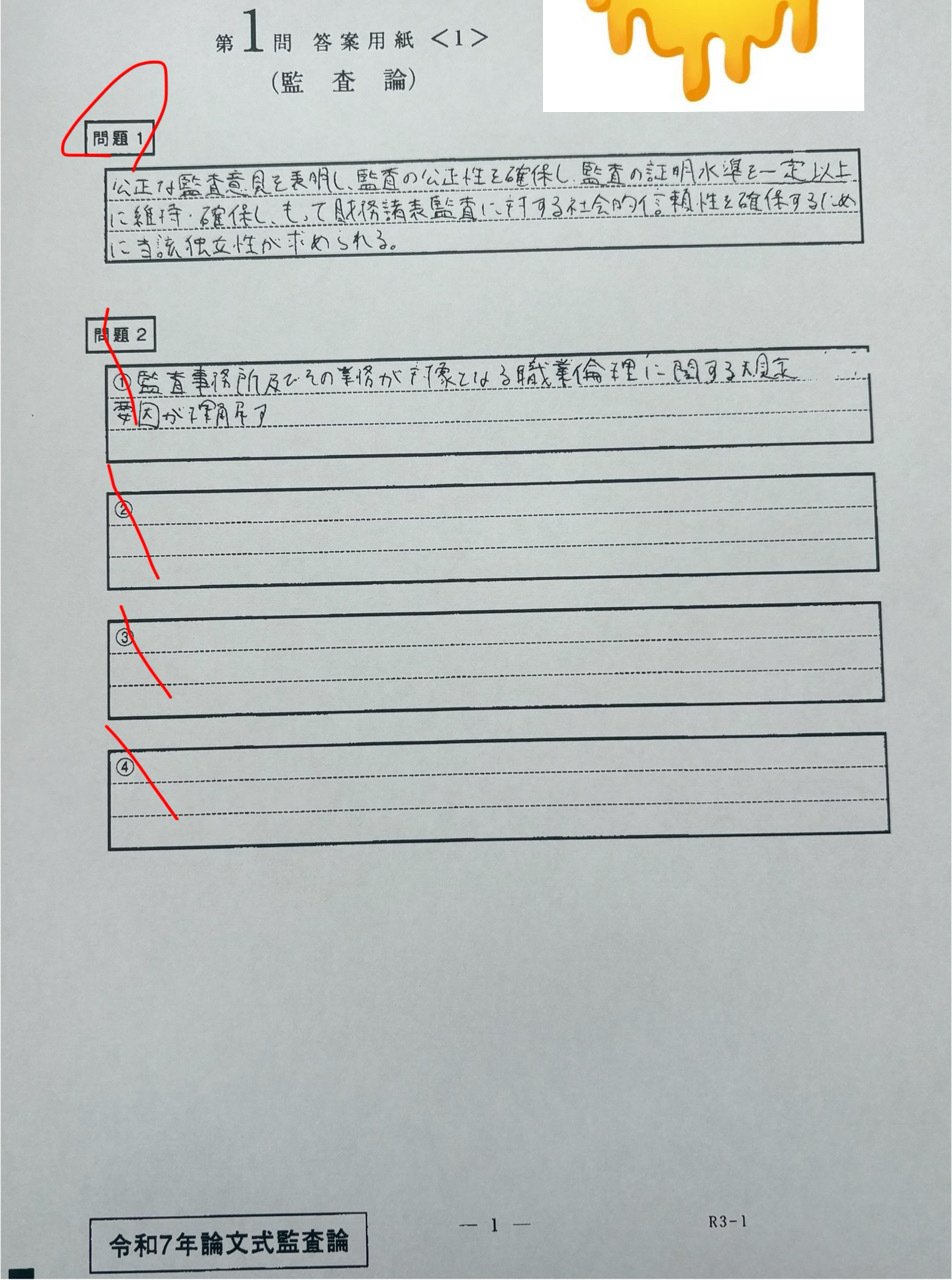 第1問 答案用紙 <1>
(監査論)
問題 1
公正な監査意見を表明し、監査の公正性を確保し、監査の証明水準を一定以上
に維持・確保し、もって財務諸表監査に対する社会的信頼性を確保するため
に当該独立性が求められる。
問題 2
① 監査事務所及びその業務が対象となる職業倫理に関する規定
要因が理解す
②
③
④
— 1 —
R3-1
令和7年論文式監査論